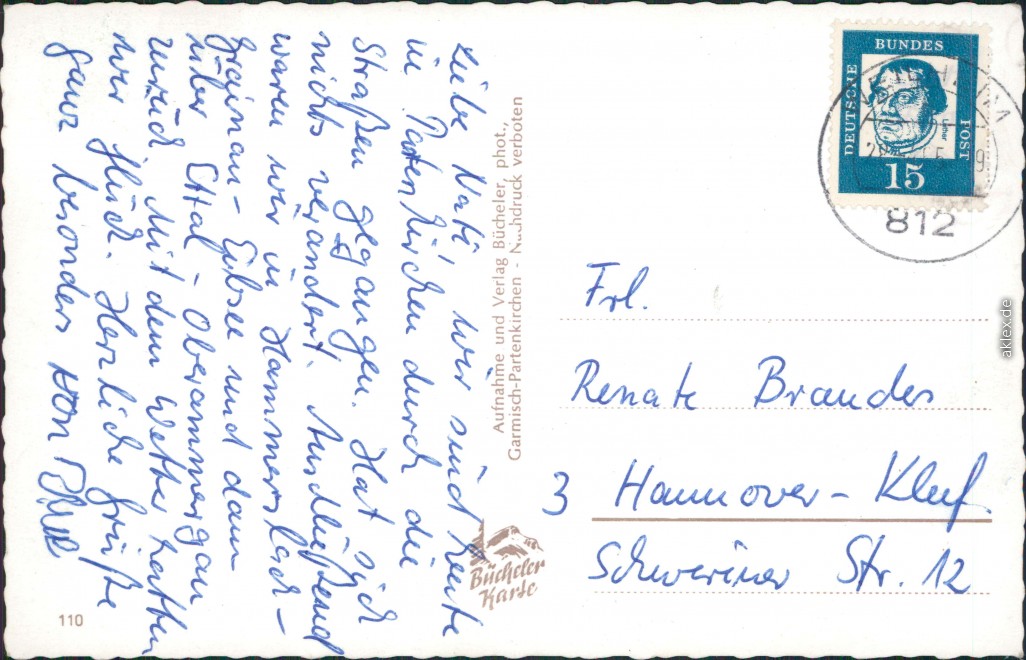 Liebe Nati, wir sind heute
in Partenkirchen durch die
Straßen gegangen. Hat sich
nichts verändert. Anschließend
waren wir in Hammersbach-
Grainau - Eibsee und dann
über Ettal - Oberammergau
zurück. Mit dem Wetter hatten
wir Glück. Herzliche Grüße
ganz besonders von
Aufnahme und Verlag Bücheler, phot.,
Garmisch-Partenkirchen - Nachdruck verboten
Bücheler
Karte
110
DEUTSCHE
BUNDES
POST
Luther
15
812
Frl.
Renate Brandes
3 Hannover - Kleef
Schweriner Str. 12
aklex.de